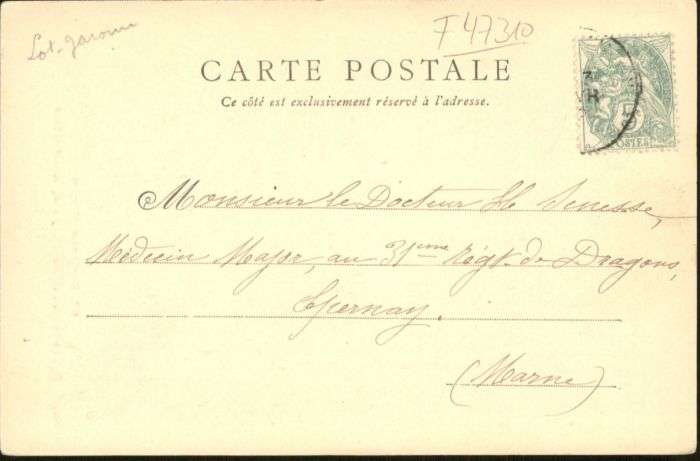 Lot-Garonne
F 47310
CARTE POSTALE
Ce côté est exclusivement réservé à l'adresse.
5
POSTES
Monsieur le Docteur Senesse,
Médecin Major, au 31ème Régt. de Dragons,
Epernay.
(Marne)